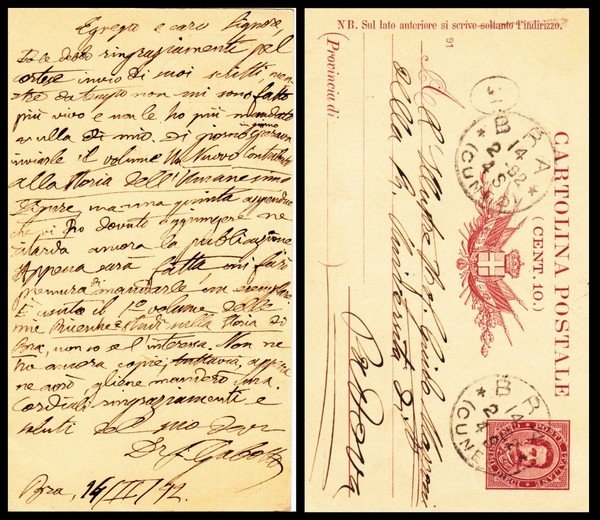 Egregio e caro Signore,
Io le debbo ringraziamenti pel
cortese invio di suoi scritti men-
tre da tempo non mi sono fatto
più vivo e non le ho più mandato
nulla di mio. Di giorno in giorno
inviarle il volume Un Nuovo Contributo
alla Storia dell'Umanesimo
Ligure, ma una giunta
che vi ho dovuto aggiungere ne
ritarda ancora la pubblicazione
Appena sarà fatta mi farò
premura di mandarle un esemplare
È uscito il 1º volume delle
mie Ricerche e Studi sulla Storia di
Bra, non so se l'interessa. Non ne
ho ancora copie, tuttavia, appe-
ne avrò, gliene manderò una.
Cordiali ringraziamenti e
saluti dal suo dev
Dr. F. Gabotto
Bra, 14/II/92
NB. Sul lato anteriore si scrive soltanto l'indirizzo.
91
CARTOLINA POSTALE
(CENT. 10.)
All'Illustre Prof. Guido Mazzoni
della R. Università di
Padova
(Provincia di
)
BRA
14
2-92
4S
* (CUNEO) *
BRA
14
2-92
4S
* (CUNEO) *
POSTE ITALIANE
DIECI